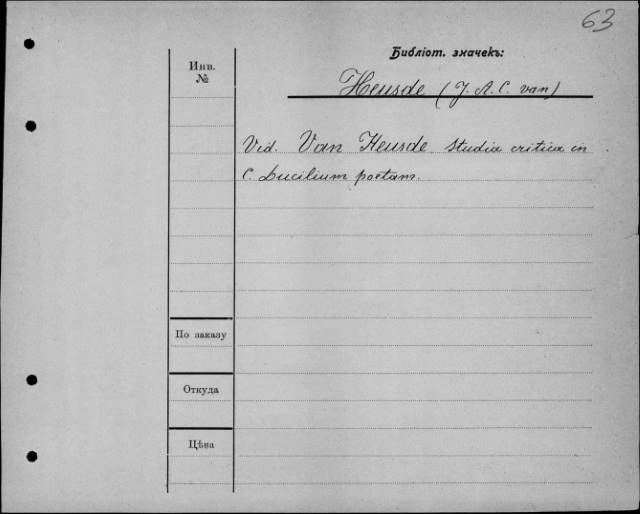 63
Библіот. значекъ:
Инв.
№
Heusde (J. A. C. van)
Vid. Van Heusde Studia critica in
C. Lucilium poetam.
По заказу
Откуда
Цѣна